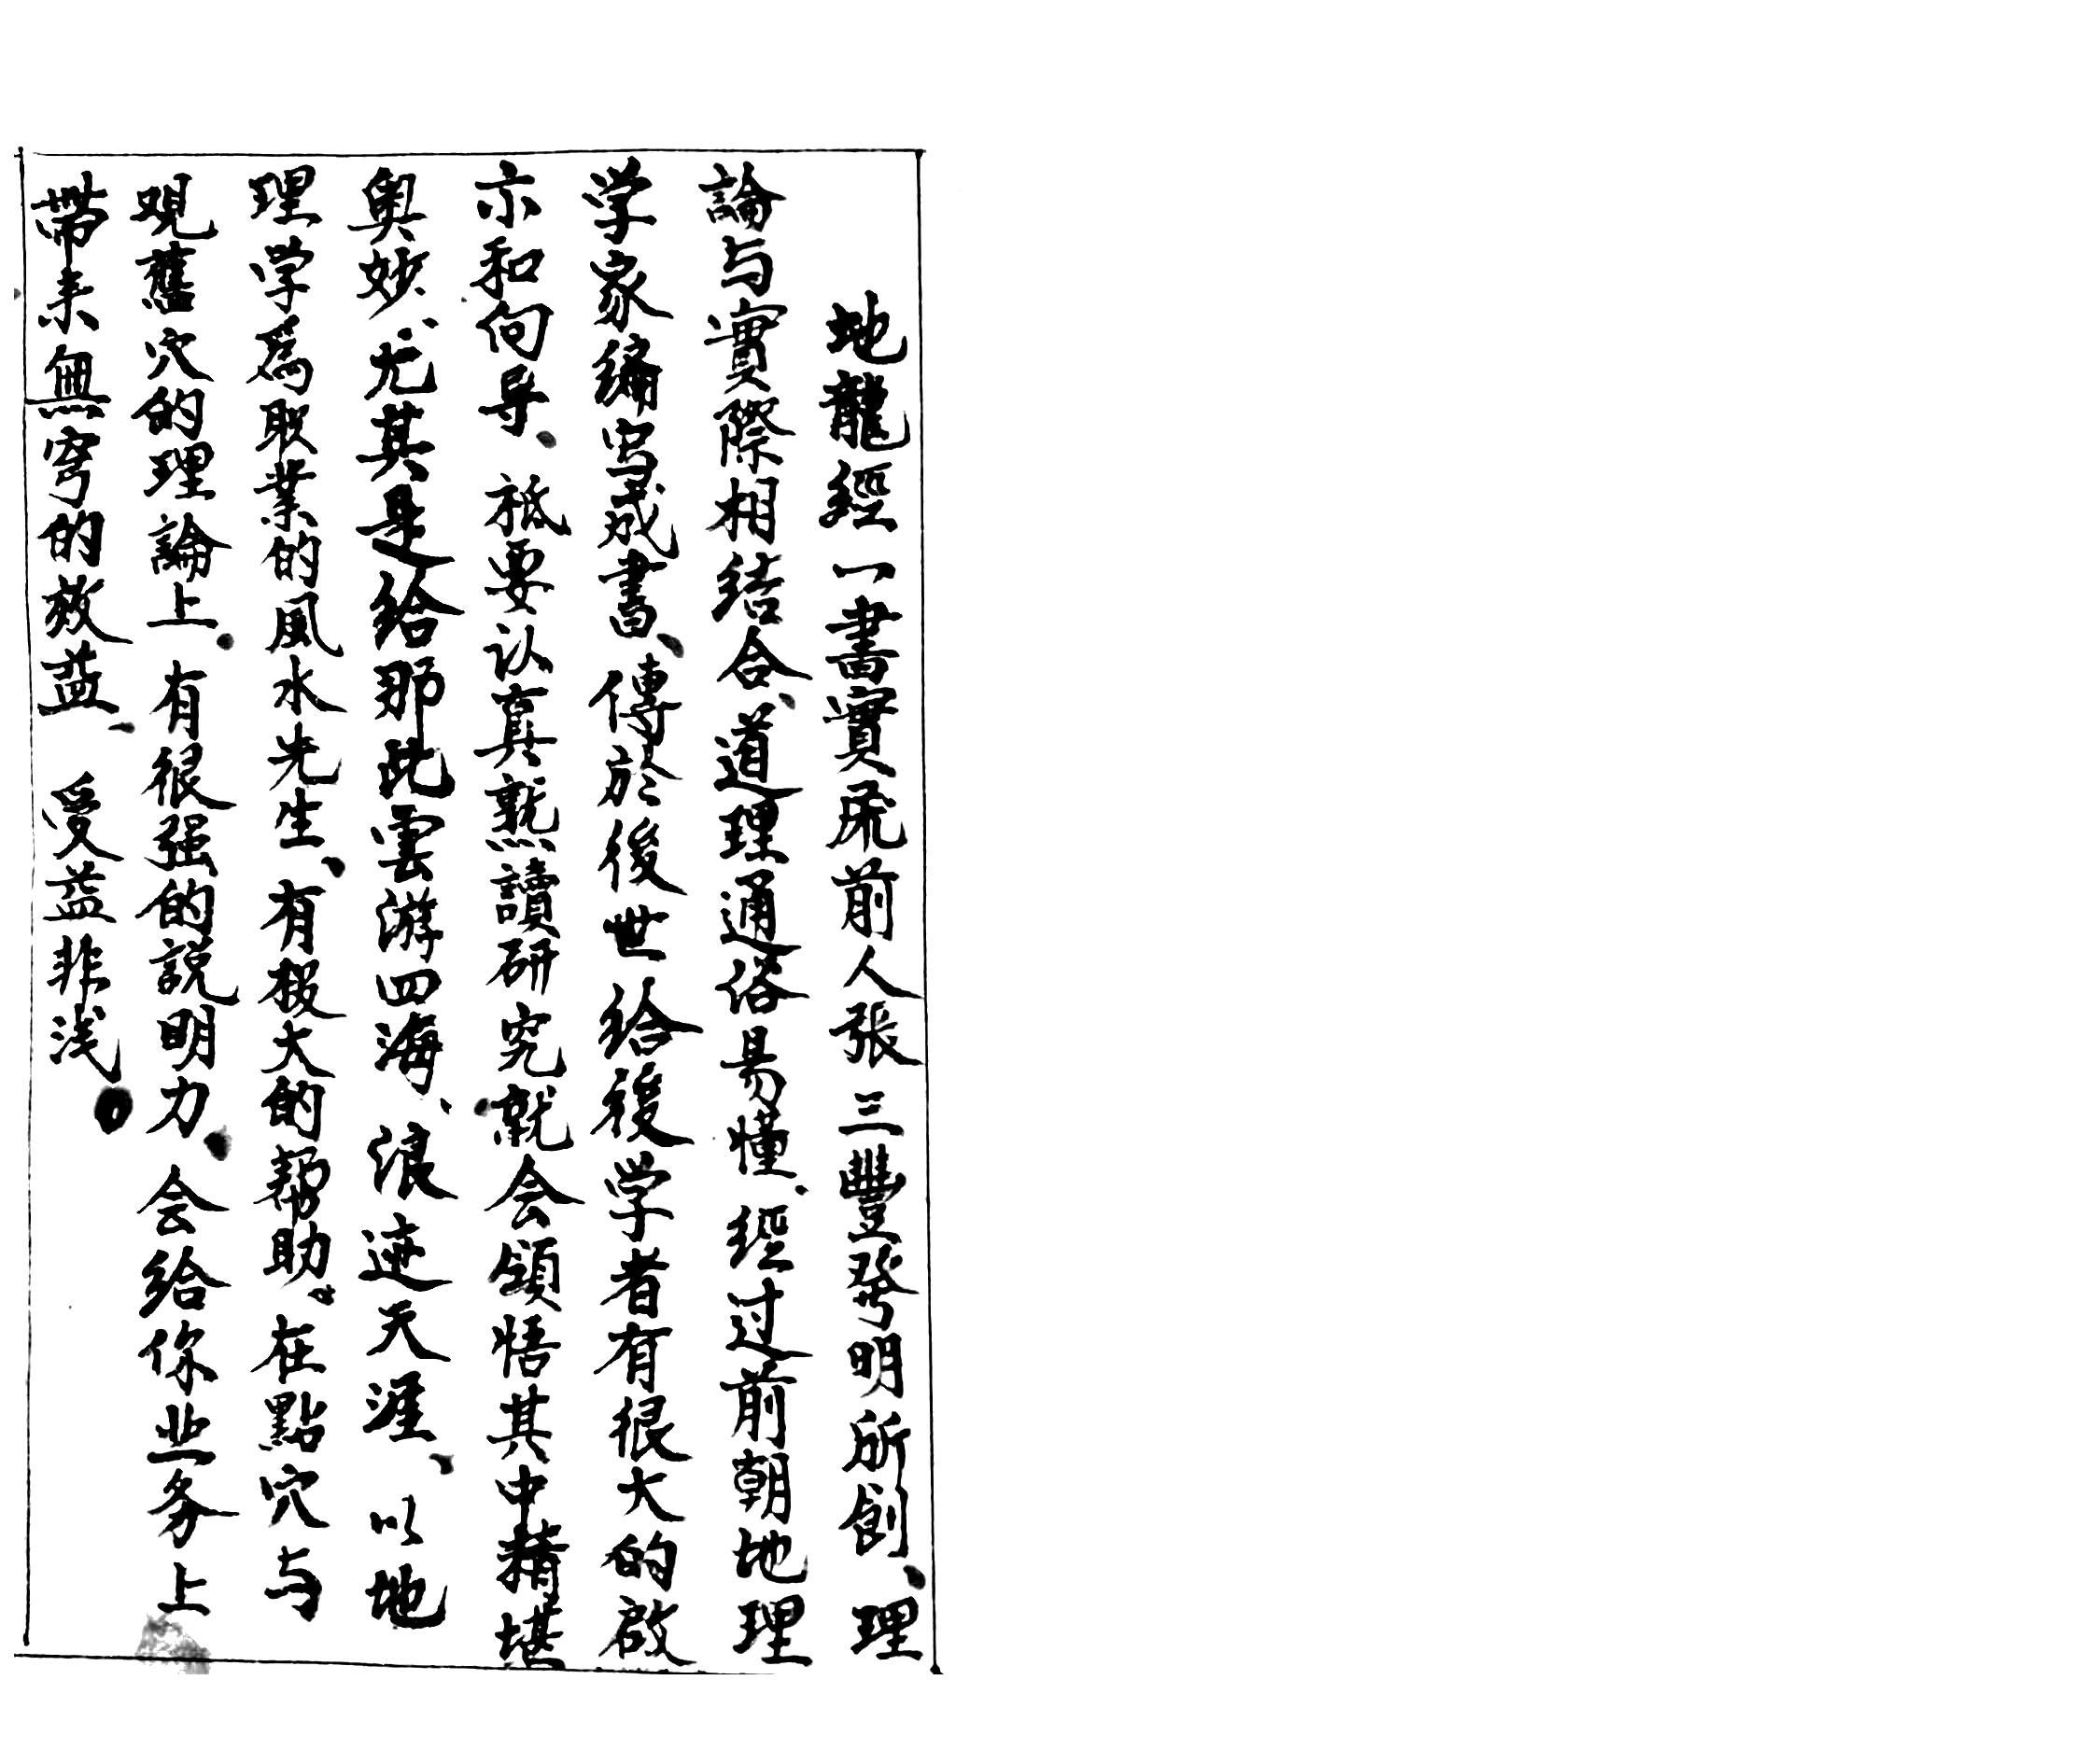 地龍經一書實乃前人張三豐發明所創、理
論与實際相结合、道理通俗易懂、經过前朝地理
学家编写成書、傳於後世给後学者有很大的啟
示和向导、祗要认真熟讀研究就会領悟其中精湛
奥妙、尤其是给那些雲游四海、浪迹天涯、以地
理学為职業的風水先生、有极大的帮助。在點穴与
观舊穴的理論上、有很强的説明力、会给你业务上
带来無穹的效益、受益非浅。